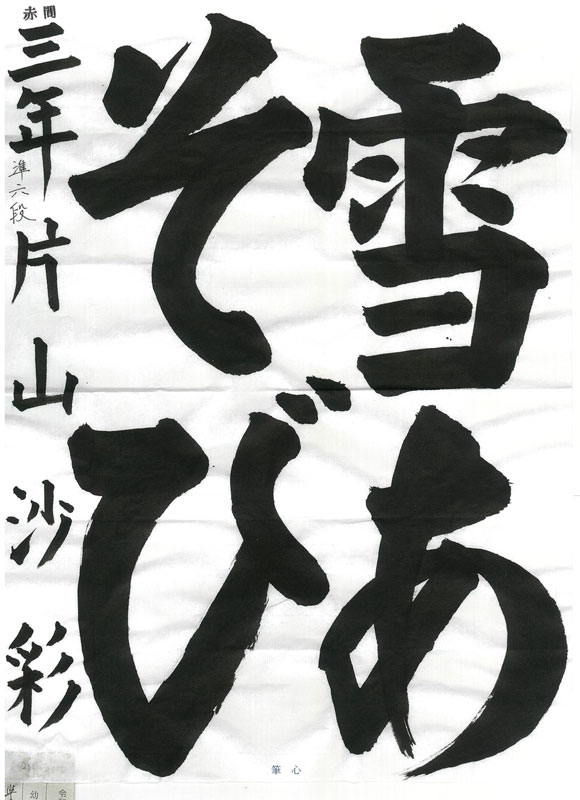 雪あ
そび
赤間
三年片山沙彩
準六段
筆心
幼